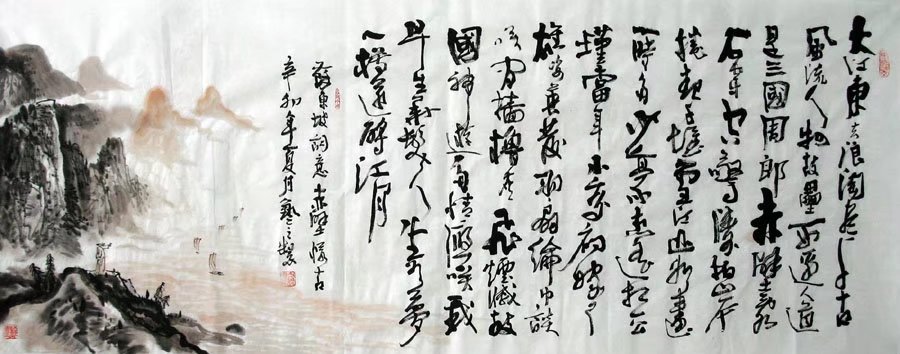 大江東去浪淘盡千古
風流人物故壘西邊人道
是三國周郎赤壁亂
石穿空驚濤拍岸
捲起千堆雪江山如畫
一時多少豪傑遙想公
瑾當年小喬初嫁了
雄姿英發羽扇綸巾談
笑間檣櫓灰飛煙滅故
國神遊多情應笑我
早生華髮人生如夢
一樽還酹江月
蘇東坡詞意赤壁懷古
辛卯年夏月